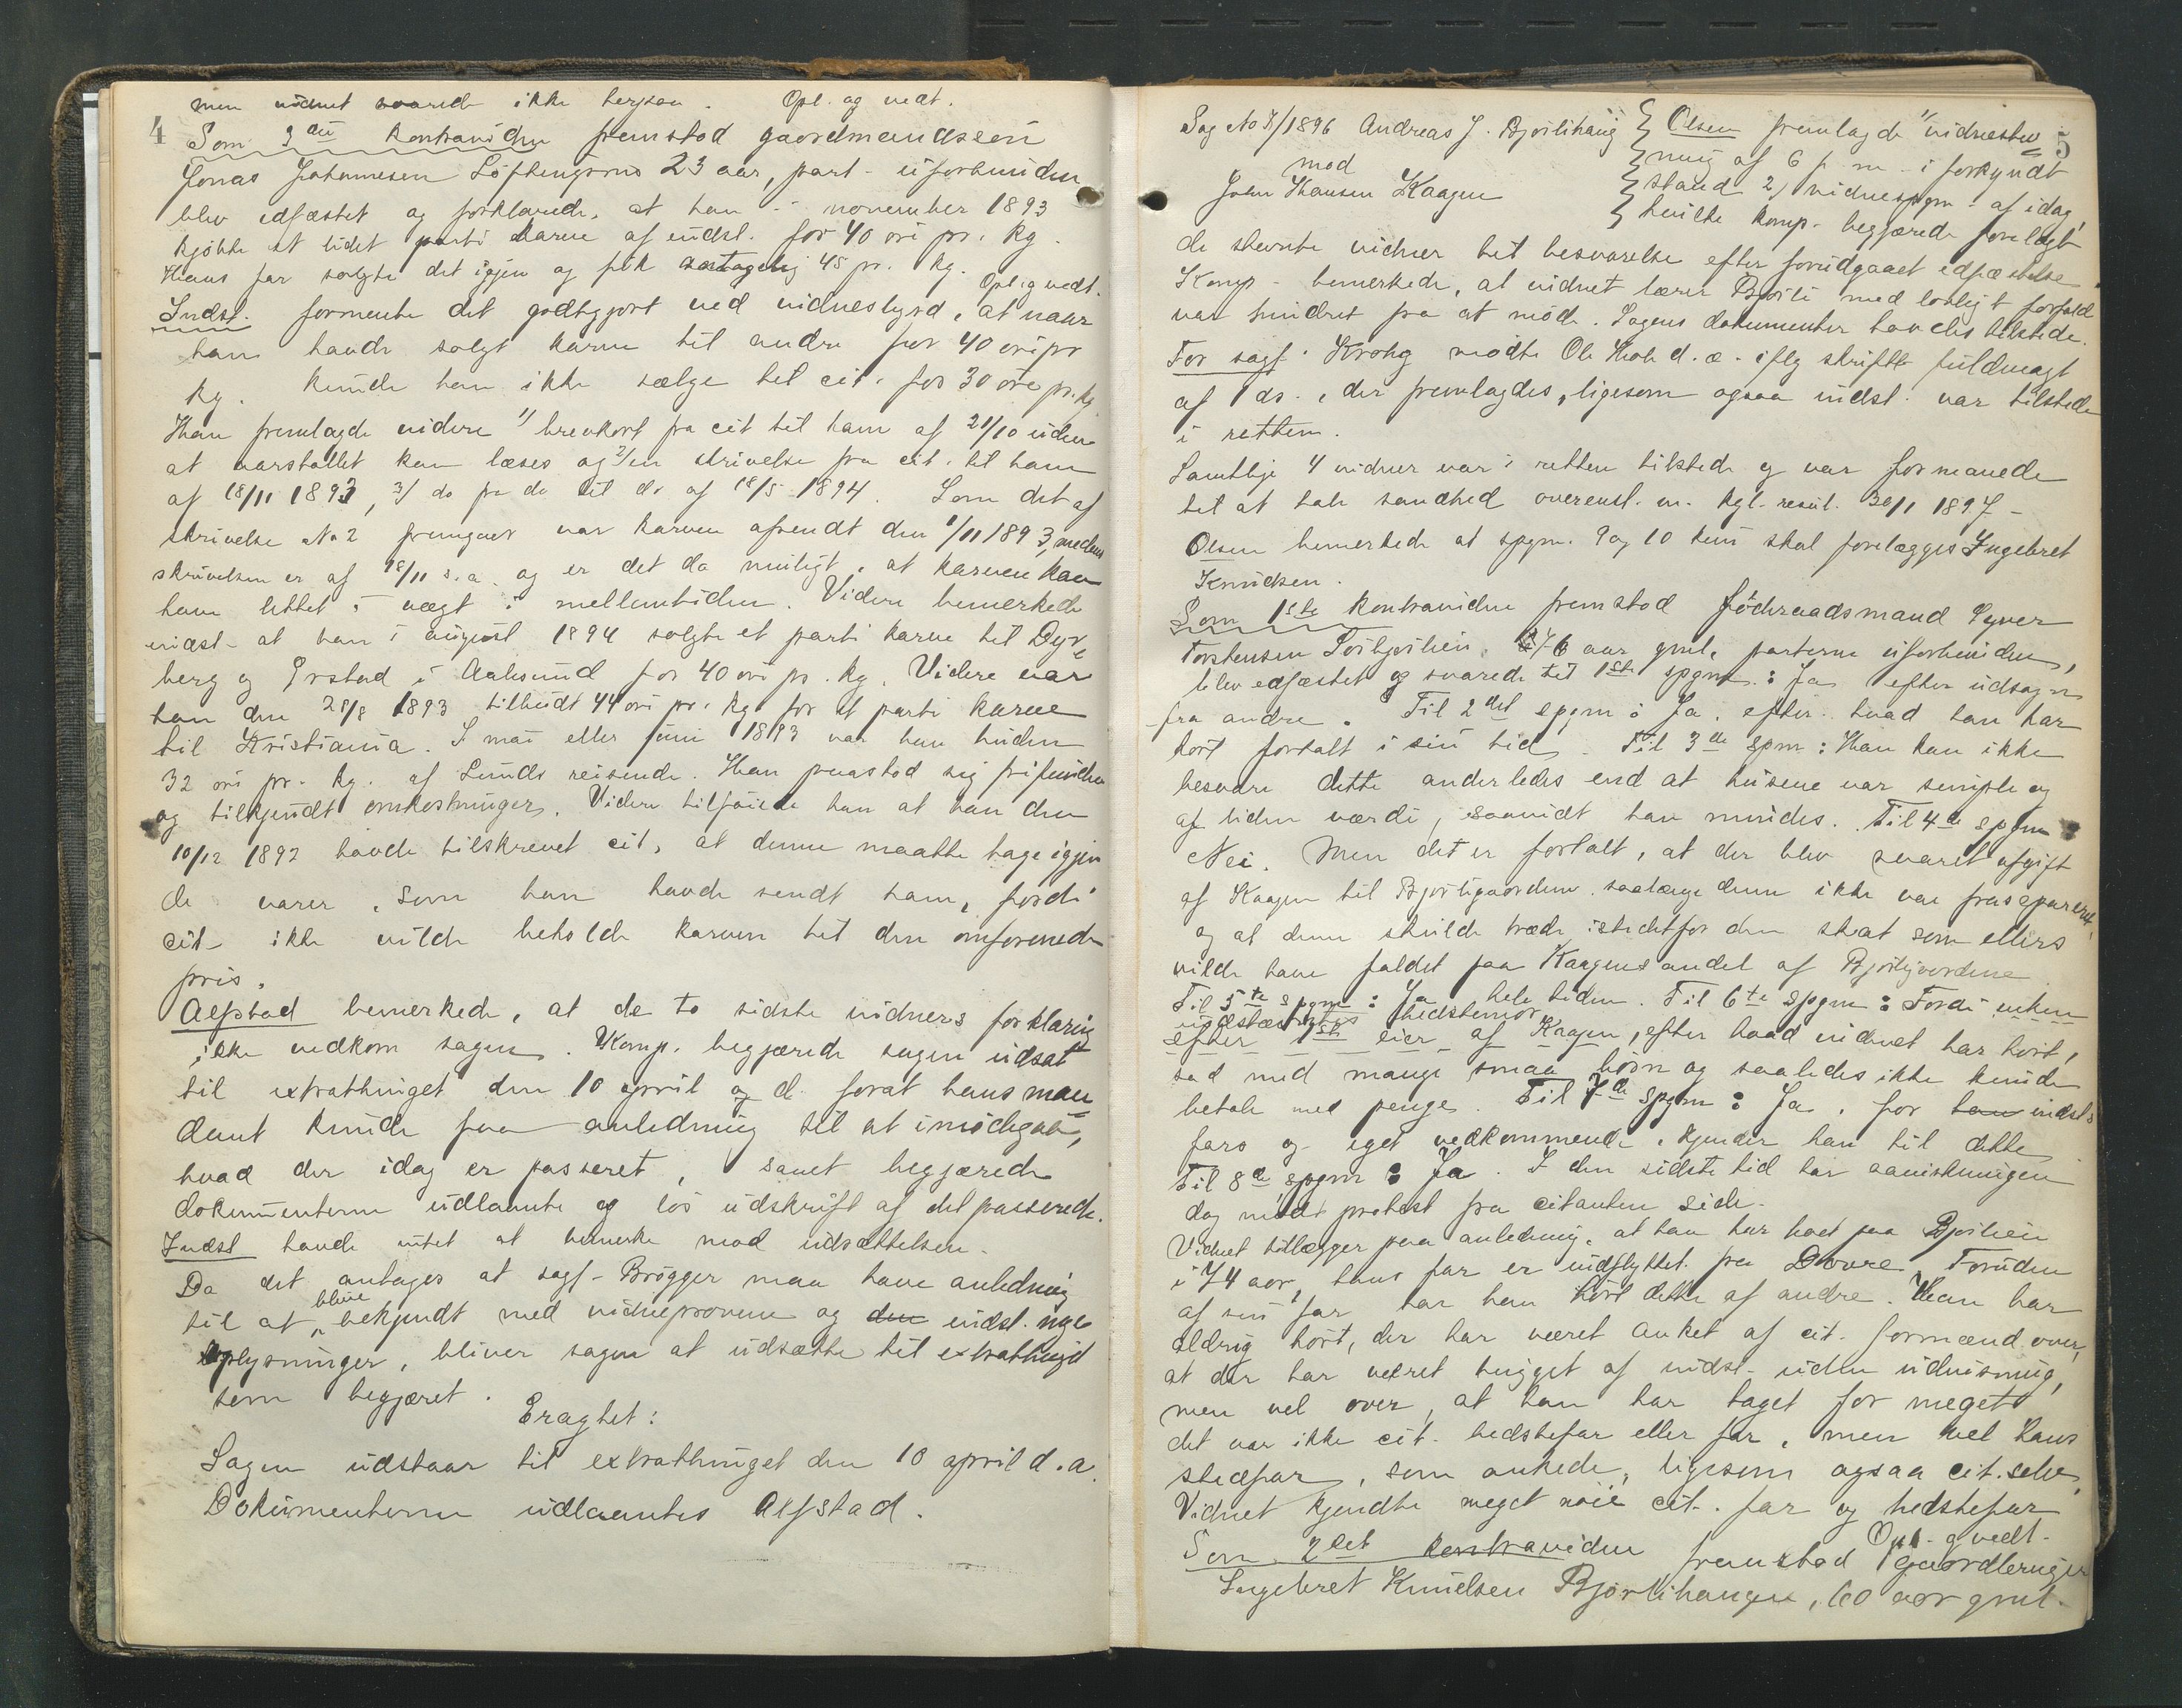 4
men vidnet svarede ikke herpaa. Opl. og vedt.
Som 3die kontravidne fremstod gaardmandssøn
Jonas Johannesen Löftengsmo 23 aar, part. uforbunden
blev edfæstet og forklarede, at han i november 1893
kjöbte et lidet parti karve af indst. for 40 öre pr. kg.
Hans far solgte det igjen og fik antagelig 45 pr. kg. Opl. og vedt.
Indst. formente det godtgjort ved vidnesbyrd, at naar
han havde solgt karve til andre for 40 öre pr
kg. kunde han ikke sælge til cit. for 30 öre pr. kg.
Han fremlagde videre 1/ brevkort fra cit til ham af 21/10 uden
at aarstallet kan læses og 2/ en skrivelse fra cit. til ham
af 18/11 1893, 3/ do fra do til do af 18/5 1894. Som det af
skrivelse No 2 fremgaar var karven afsendt den 1/11 1893, medens
skrivelsen er af 18/11 s.a. og er det da muligt, at karven kan
have lettet i vægt i mellemtiden. Videre bemerkede
indst. at han i august 1894 solgte et parti karve til Dyr-
berg og Erstad i Aalesund for 40 öre pr. kg. Videre var
han den 28/8 1893 tilbudt 44 öre pr. kg. for et parti karve
til Kristiania. I mai eller juni 1893 var han buden
32 öre pr. kg. af Lunds reisende. Han paastod sig frifunden
og tilkjendt omkostninger. Videre tilföiede han at han den
10/12 1892 havde tilskrevet cit, at denne maatte tage igjen
de varer, som han havde sendt ham, fordi
cit. ikke vilde beholde karven til den omforenede
pris.
Alfstad bemerkede, at de to sidste vidners forklaring
ikke vedkom sagen. Komp. begjærede sagen udsat
til extrathinget den 10 april og d. forat hans man
dant kunde faa anledning til at imödegaa,
hvad der idag er passeret, samt begjærede
dokumenterne udlaante og lös udskrift af det passerede.
Indst havde intet at bemerke mod udsættelsen.
Da det antages at sagf. Brögger maa have anledning
til at blive bekjendt med vidneprovene og den indst. nye
oplysninger, bliver sagen at udsætte til extrathinget
som begjæret.
Eragtet:
Sagen udstaar til extrathinget den 10 april d.a.
Dokumenterne udlaantes Alfstad.
5
Sag No 8/1896 Andreas J. Bjorlihaug
mod
John Hansen Kaagen
Olsen fremlagde 1/ vidnestev
ning af 6 f.m. i forkyndt
stand 2) vidnespgm. af idag,
hvilke komp. begjærede forelagt
de stevnte vidner til besvarelse efter forudgaaet edfæstelse.
Komp. bemerkede, at vidnet lærer Bjorli med lovligt forfald
var hindret fra at möde. Sagens dokumenter havdes tilstede.
For sagf. Krohg mödte Ole Hole d.æ. iflg skriftl fuldmagt
af 1 ds., der fremlagdes, ligesom ogsaa indst. var tilstede
i retten.
Samtlige 4 vidner var i retten tilstede og var formanede
til at tale sandhed overensst. m. kgl. resol. 30/1 1897 -
Olsen bemerkede at spgm. 9 og 10 kun skal forelægges Ingebret
Knudsen.
Som 1ste kontravidne fremstod föderaadsmand Syver
Torstensen 76 aar gml. parterne uforbunden,
blev edfæstet og svarede til 1ste spgm.: Ja efter udsagn
fra andre. Til 2det spgm: Ja, efter hvad han har
hört fortalt i sin tid. Til 3de spm: Han kan ikke
besvare dette anderledes end at husene var simple og
af liden værdi, saavidt han mindes. Til 4de spgm
Nei. Men det er fortalt, at der blev svaret afgift
af Kaagen til Bjorligaardene saalænge denne ikke var fraseparert,
og at denne skulde træde istedetfor den skat som ellers
vilde have faldet paa Kaagens andel af Bjorligaardene
Til 5te spgm: Ja hele tiden. Til 6te spgm: Fordi enken
indstævntes bedstemor
efter 1ste eier af Kaagen, efter hvad vidnet har hört,
sad med mange smaa börn og saaledes ikke kunde
betale med penge. Til 7de spgm: Ja, for han indst's
fars og eget vedkommende kjender han til dette
Til 8de spgm: Ja. I den sidste tid har aavirkningen
dog mödt protest fra citanten side.
Vidnet tillægger paa anledning, at han har boet paa Bjorlien
i 74 aar, hans far er indflyttet fra Dovre. Foruden
af sin far har han hört dette af andre. Han har
aldrig hört, der har været anket af cit. formænd over,
at der har været hugget af indst. uden udvisning,
men vel over, at han har taget for meget
det var ikke cit. bedstefar eller far, men vel hans
stedfar, som ankede, ligesom ogsaa cit. selv.
Vidnet kjendte meget nöie cit. far og bedstefar
Opl. og vedt.
Som 2det kontravidne fremstod gaardbruger
Ingebret Knudsen Bjorlihaugen, 60 aar gml.